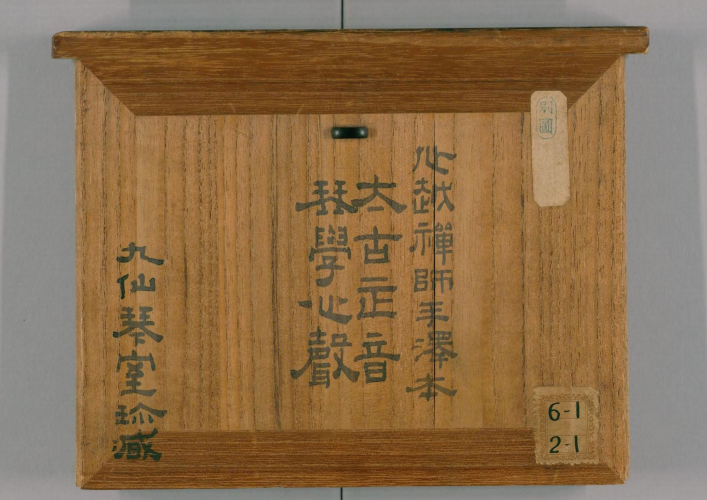 心越禅師手澤本
太古正音
琴學心聲
九仙琴室珍藏
別國
6-1
2-1